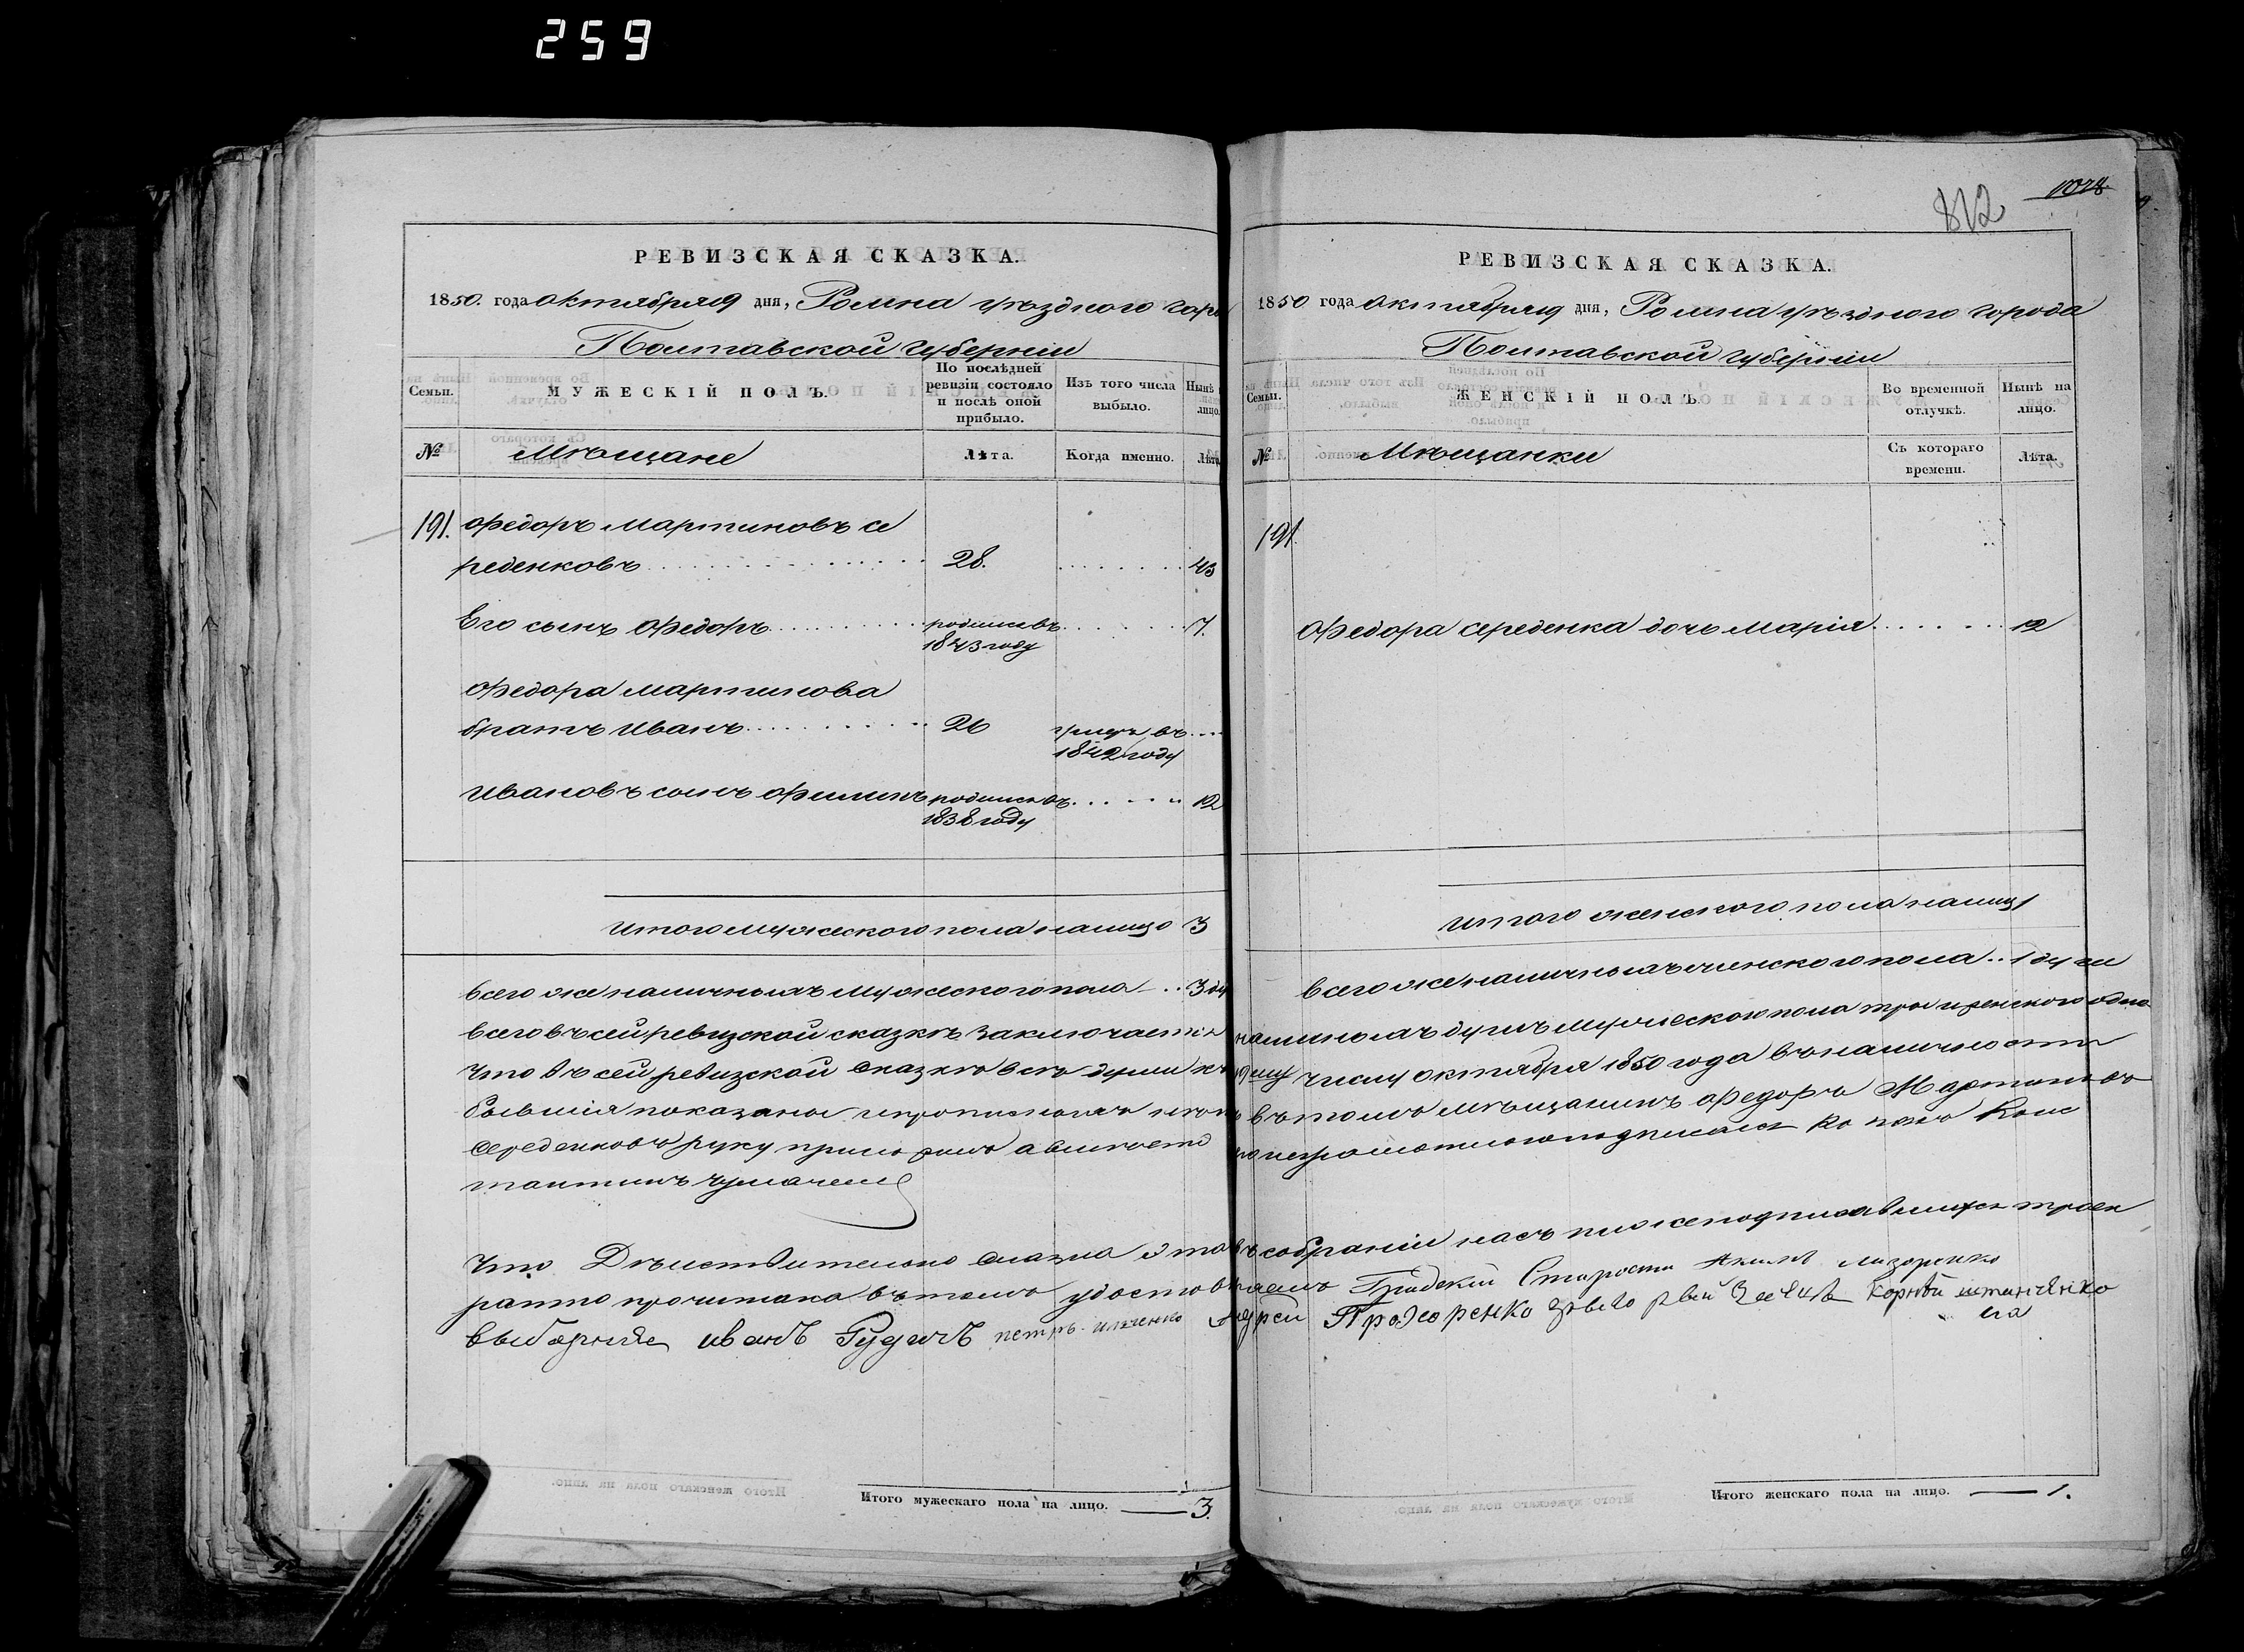 259
РЕВИЗСКАЯ СКАЗКА.
1850. года октября 19 дня, Ромна уѣзднаго горо
Полтавской губерніи
Семьи.
МУЖЕСКІЙ ПОЛЪ.
По послѣдней ревизіи состояло и послѣ оной прибыло.
Изъ того числа выбыло.
Нынѣ лицо.
№
Мѣщане
Лѣта.
Когда именно.
Лѣта
191. Федоръ Мартиновъ Се
реденковъ 28. 43
Его сынъ Федоръ родился въ 7.
1843 году
Федора Мартинова
братъ Иванъ 26 умеръ въ
1842 году
Ивановъ сынъ Филипъ родился въ 12
1838 году
Итого мужескаго пола налицо 3
всего же наличныхъ мужескаго пола 3 ду
всего въ сей ревизской сказкѣ заключается
что въ сей ревизской сказкѣ всѣ души къ
бывшія показаны и прописныхъ нѣтъ
Середенковъ руку приложилъ а вмѣсто
тантинъ
Что Дѣйствительно сказка эта
ратно прочитана въ томъ удостовѣ
выборные иванъ Рудичъ петръ ильченко Андрей
Итого мужескаго пола на лицо. 3.
812 1028.
РЕВИЗСКАЯ СКАЗКА.
1850 года октября 19 дня, Ромна уѣзднаго города
Полтавской губерніи
Семьи.
ЖЕНСКІЙ ПОЛЪ.
Во временной отлучкѣ.
Нынѣ на лицо.
№
Мѣщанки
Съ котораго времени.
Лѣта.
191.
Федора Середенка дочь Марія 12
итого женского пола налицо 1
всего же наличныхъ женского пола 1 душа
наличныхъ душъ мужеского пола три женского одна
19му числу октября 1850 года въ наличности
въ томъ мѣщанинъ Федоръ Мартиновъ
его неграмотного подписался Конс
въ собраніи насъ нижеподписавшихся троек
ряемъ Градскій Староста Акимъ лазоренко
Прохоренко Корнѣй
Итого женскаго пола на лицо. 1.